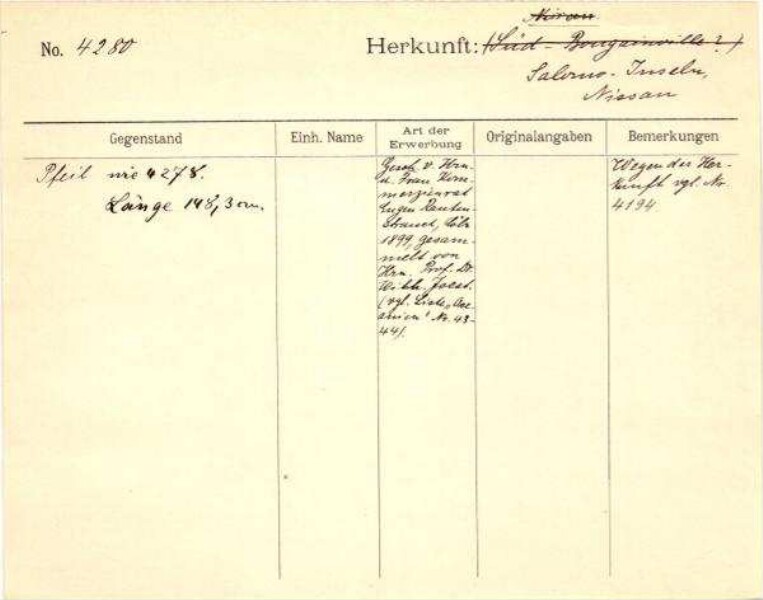 No. 4280
Herkunft: (Süd - Bougainville?)
Salomo-Inseln,
Nissan
Gegenstand
Einh. Name
Art der
Erwerbung
Originalangaben
Bemerkungen
Pfeil wie 4278.
Länge 148,3 cm.
Gesch. v. Hrn.
u. Frau Kom-
merzienrat
Eugen Rauten-
strauch, Cöln
1899, gesam-
melt von
Hrn. Prof. Dr.
Wilh. Joest.
(vgl. Liste „Oce-
anien" Nr. 43-
44).
Wegen der Her-
kunft vgl. Nr.
4194.